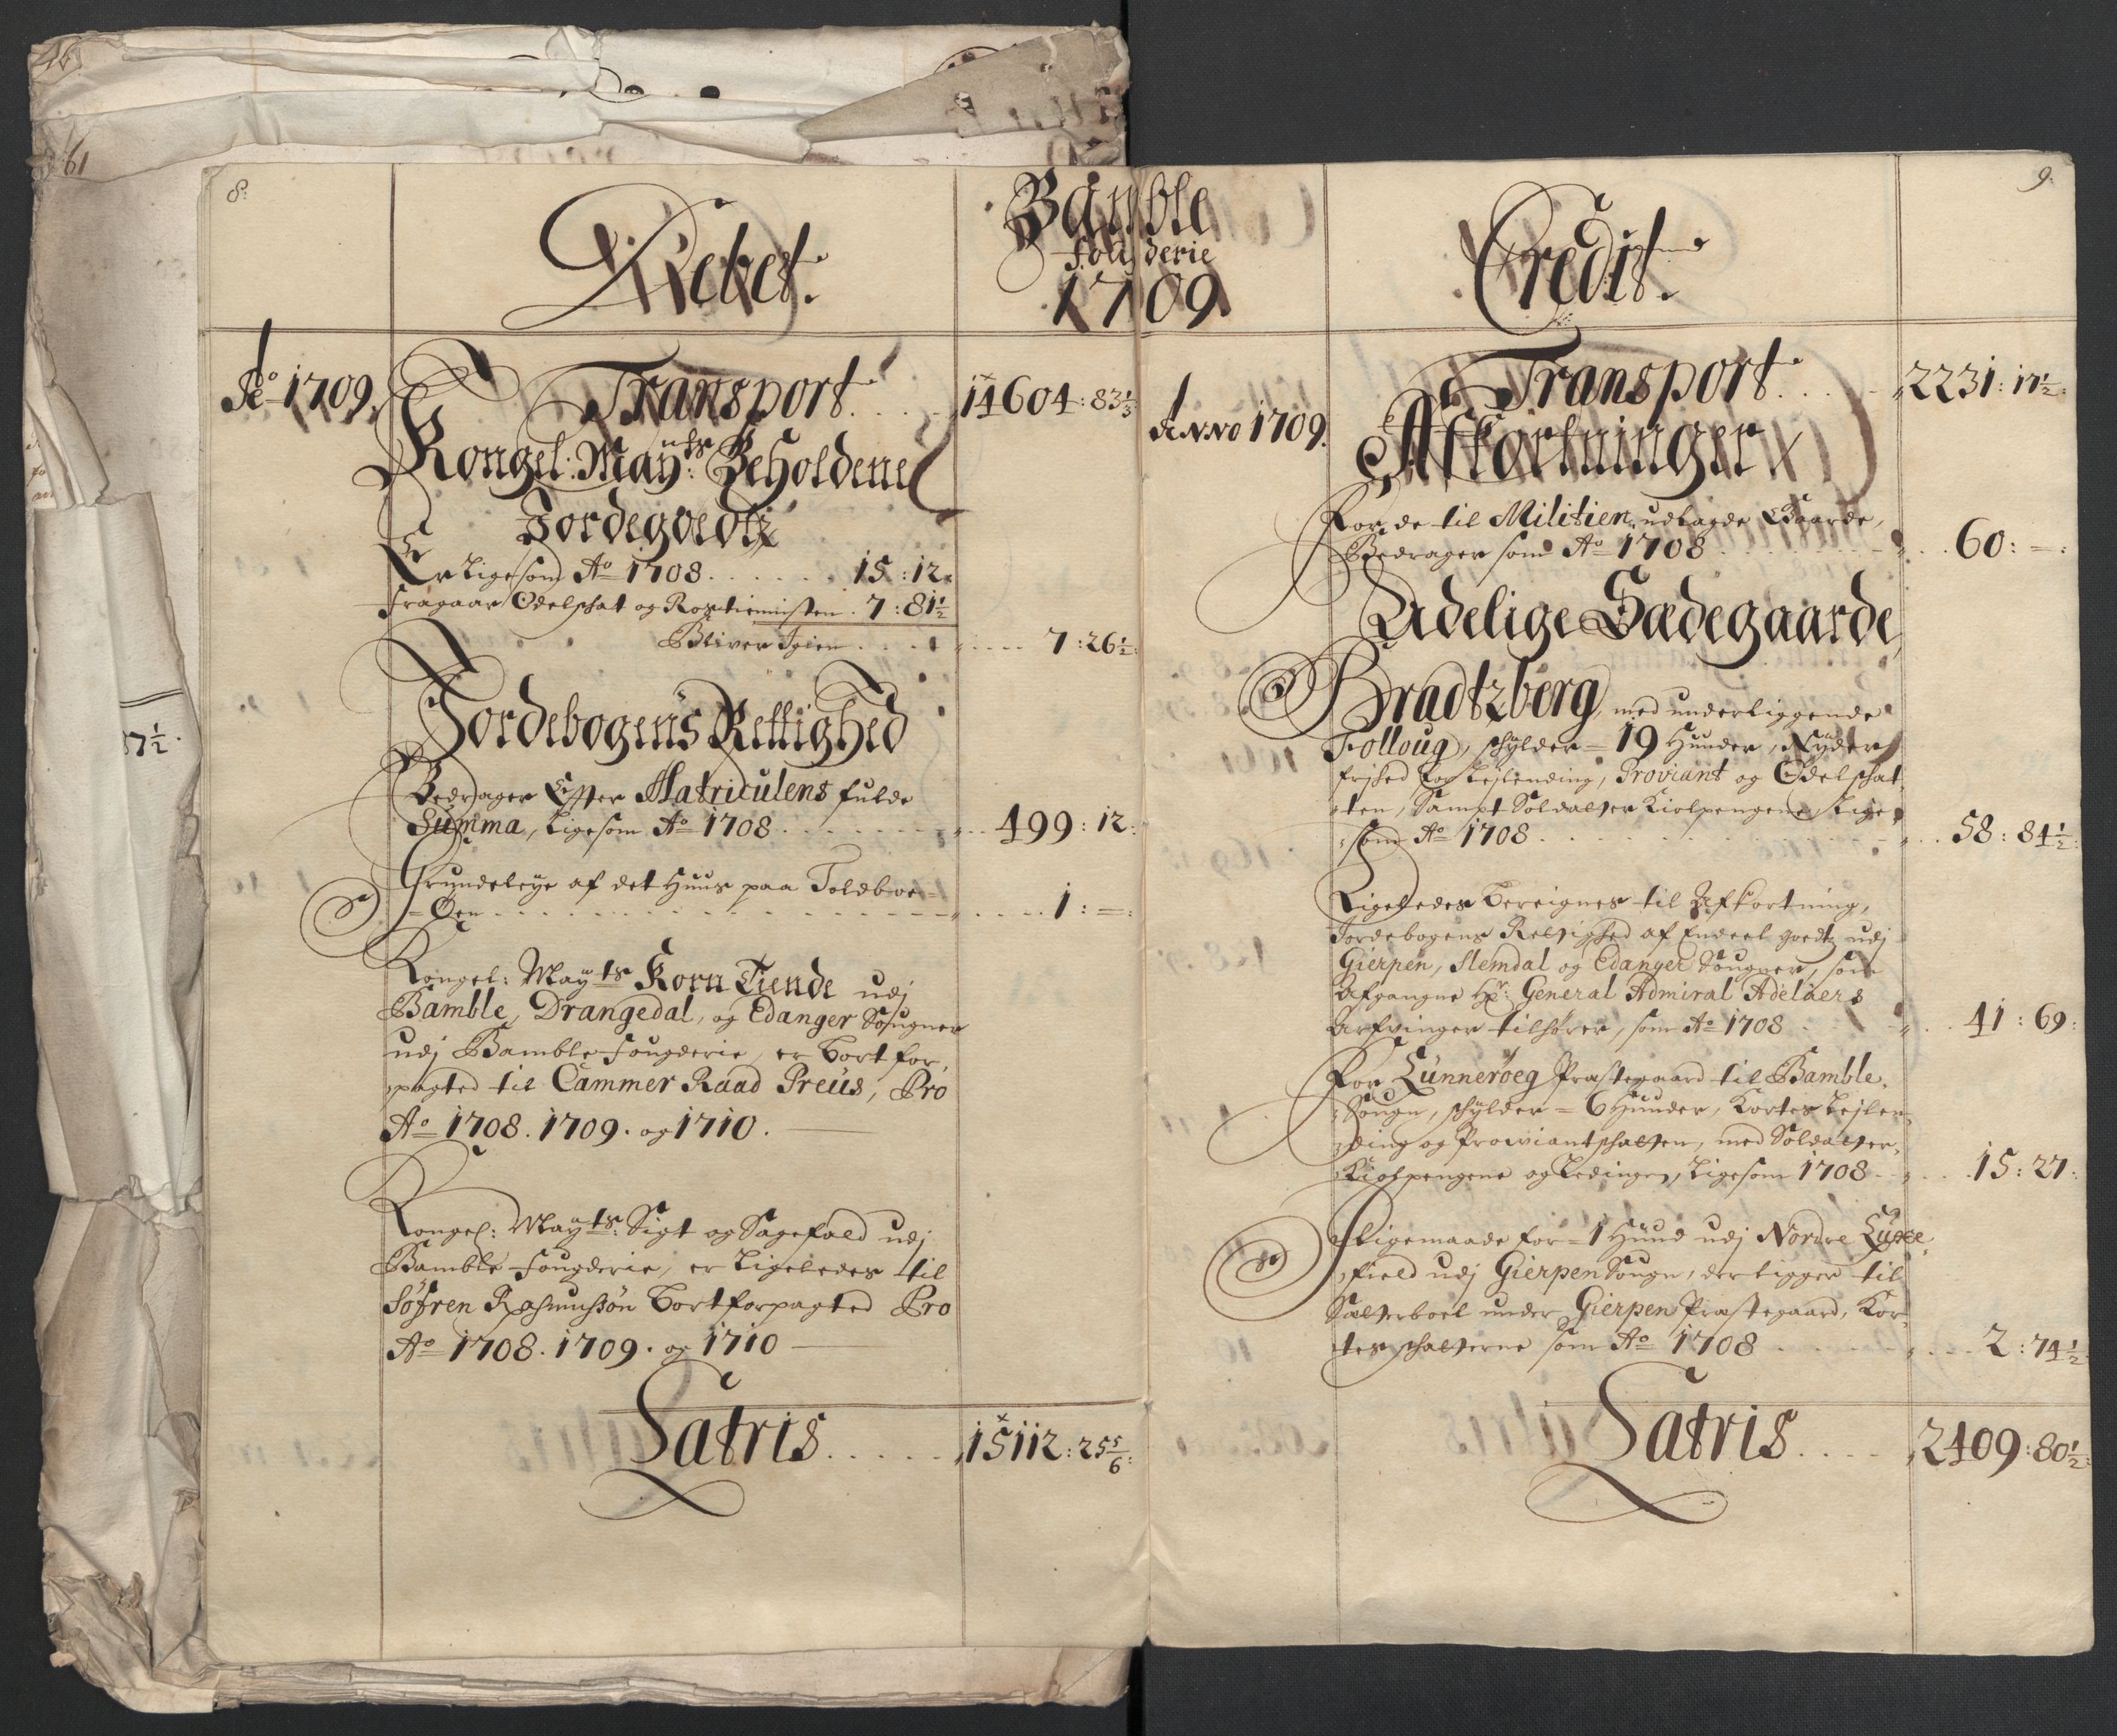 8:
Debet.
Bamble
Fougderie
1709
Ao 1709.
Transport . . . . 14604: 83 1/3
Kongel: Mayts: Beholdene
Jordegoedtz
Er Ligesom Ao 1708 . . . . . . 15 : 12:
Fragaar Odelschat og Rostienisten . 7 : 81 1/2
Bliver Igien . . . . 7 : 26 1/2:
Jordebogens Rettighed
Bedrager Effter Matriculens fulde
Summa, Ligesom Ao 1708 . . . . . . . 499 : 12:
Grundeleye af det Huus paa Toldboe=
=Øen . . . . . . . . . . . . . . 1 : = :
Kongel: Mayts Korn Tiende udj
Bamble, Drangedal, og Edanger Sougner
udj Bamble Fougderie, er Bortfor,
,pagted til Cammer Raad Preus, Pro
Ao 1708. 1709. og 1710.
Kongel: Mayts: Sigt og Sagefald udj
Bamble Fougderie, er Ligeledes til
Söfren Rasmusßön Bortforpagted Pro
Ao 1708. 1709. og 1710
Latris . . . . . 15112: 25 5/6:
9:
Credit.
Anno 1709.
Transport. . . . 2231: 17 1/2:
Afkortninger
For de til Militien udlagde Gaarde,
Bedrager som Ao 1708 . . . . . . . 60: = :
Adelige Sædegaarde
Bradtzberg, med underliggende
Folloug, schylder = 19 Hunder, Nyder
frihed for Leylending, Proviant og Odelschat
ten, Sampt Soldatter Kiolpengene Lige
:som Ao 1708 . . . . . . . . . . 58: 84 1/2:
Ligeledes Beregnes til Afkortning,
Jordebogens Rettighed af Endeel goedtz udj
Gierpen, Slemdal og Edanger Sougner, som
Afgangne Hr: General Admiral Adelaers
Arfvinger tilhører, som Ao 1708 . . . 41 : 69:
For Lunneröeg Præstegaard til Bamble
Sougn, schylder = 6 Hunder, Kortes Leylen,
,ding og Proviantschatten, med Soldatter,
Kiolpengene og Ledingen, Ligesom 1708 . . . 15: 27:
Sligemaade for = 1 Hund udj Nordre
,field udj Gierpen Sougn, der ligger til
Salterboel under Gierpen Præstegaard, Kor-
tes schatterne som Ao 1708 . . . . . . 2: 74 1/2
Latris . . . . 2409: 80 1/2:
61
87 1/2.